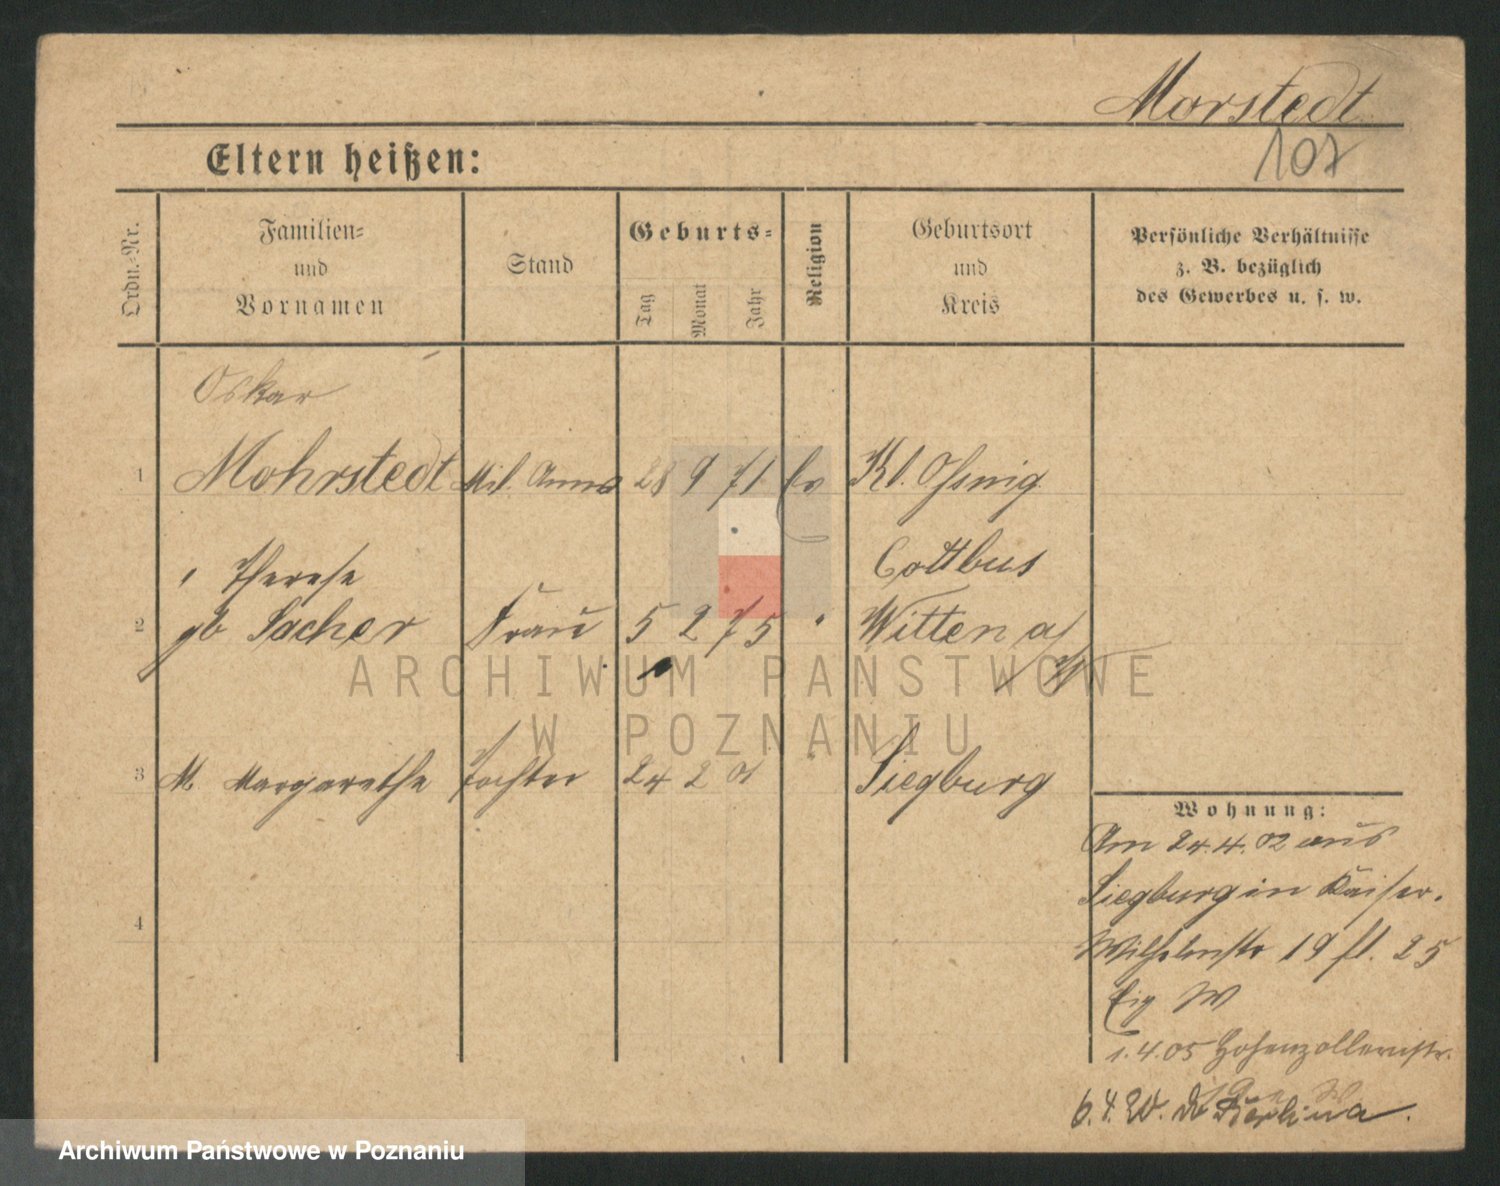 Morstedt
107
Eltern heißen:
Ordn.-Nr.
Familien-
und
Vornamen
Stand
Geburts-
Tag
Monat
Jahr
Religion
Geburtsort
und
Kreis
Persönliche Verhältnisse
z. B. bezüglich
des Gewerbes u. s. w.
Oskar
1 Mohrstedt Mil. Anw. 28 9 71 Ev Kl. Ossnig
Cottbus
" Therese
2 gb Sacher Frau 5 2 75 " Witten a/
3 M. Margarethe Tochter 24 2 01 " Siegburg
4
Wohnung:
Am 24.4.02 aus
Siegburg in Kaiser-
Wilhelmstr 19 fl. 25
Eig W
1.4.05 Hohenzollernstr.
6.4.20. do Berlina.
ARCHIWUM PAŃSTWOWE
W POZNANIU
Archiwum Państwowe w Poznaniu